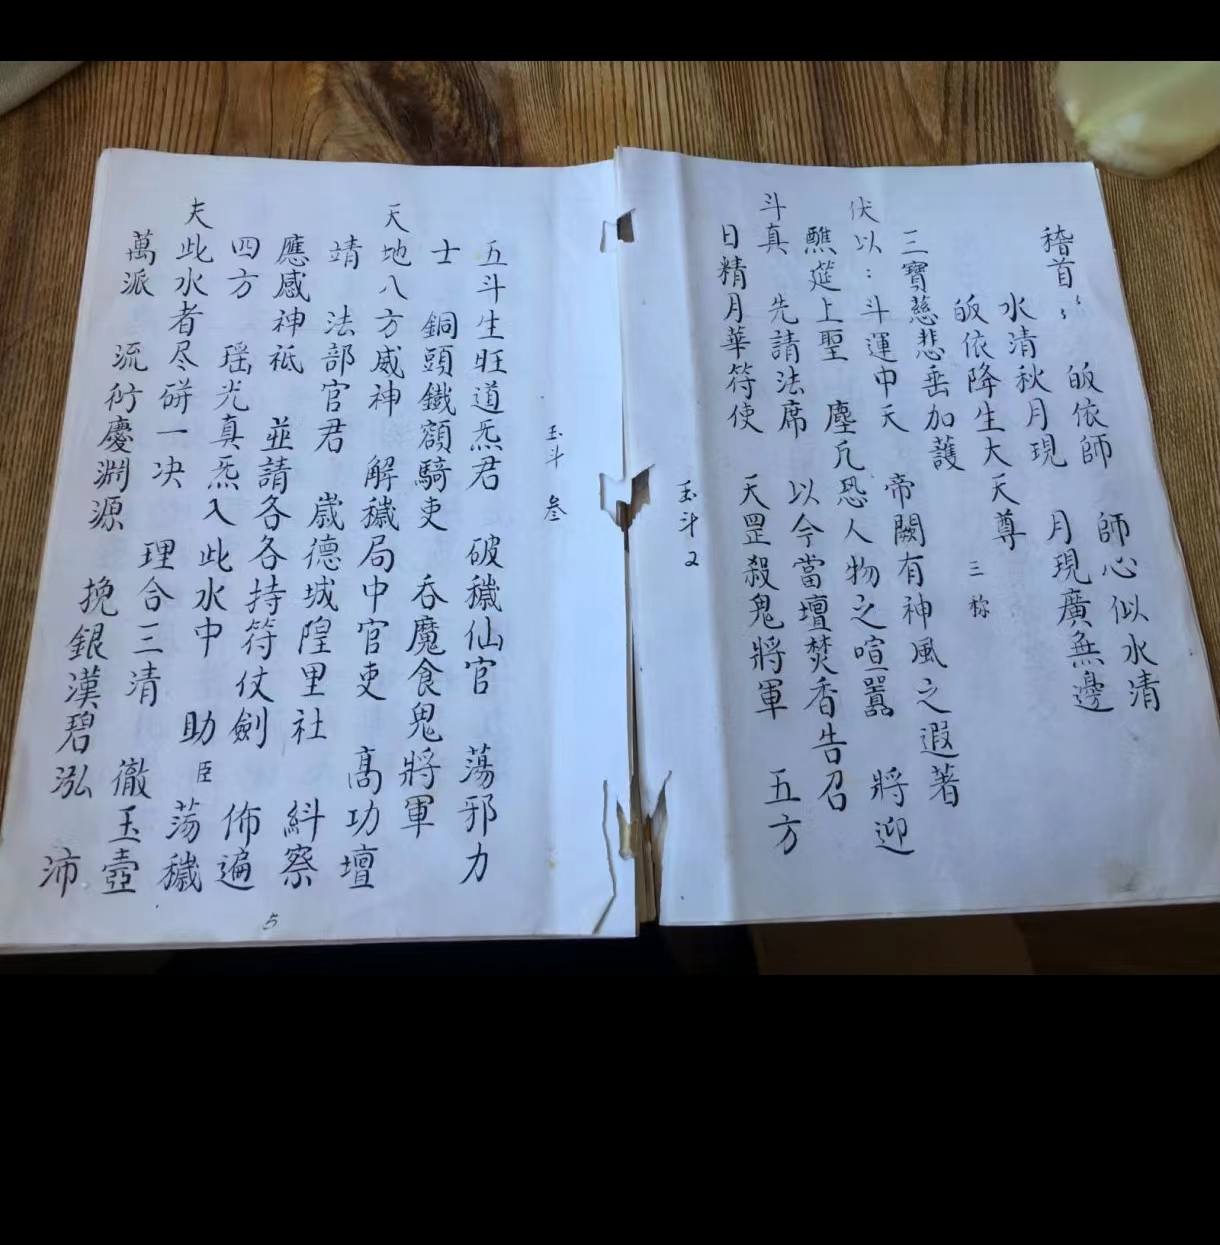 稽首〻 皈依師 師心似水清
水清秋月現 月現廣無邊
皈依降生大天尊 三称
三寶慈悲垂加護
伏以:斗運中天 帝闕有神風之遐著 將迎
醮筵上聖 塵凡恐人物之喧囂
斗真 先請法席 以今當壇焚香告召 五方
日精月華符使 天罡殺鬼將軍
玉斗2
玉斗 叁
五斗生旺道炁君 破穢仙官 蕩邪力
士 銅頭鐵額騎吏 吞魔食鬼將軍
天地八方威神 解穢局中官吏 高功壇
靖 法部官君 嵗德城隍里社 糾察
應感神祇 並請各各持符仗劍 佈遍
四方 瑶光真炁入此水中 助臣蕩穢
夫此水者尽硑一决 理合三清 徹玉壺
萬派 流衍慶渊源 挽銀漢碧泓 沛
5